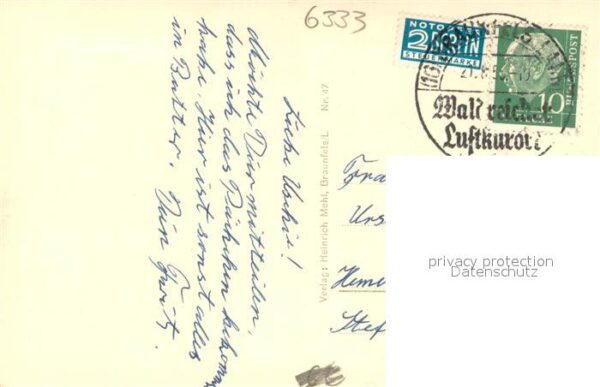 6333
NOTOPFER
2 BERLIN
STEUERMARKE
10
BUNDESPOST
Waldreicher
Luftkurort
Liebe Uschi!
möchte Dir mitteilen,
dass ich das Päckchen bekommen
habe. Hier ist sonst alles
in Butter. Dein Fritz.
Verlag: Heinrich Mehl, Braunfels/L. Nr. 47
Frau
Urs
Heme
Stef
privacy protection
Datenschutz